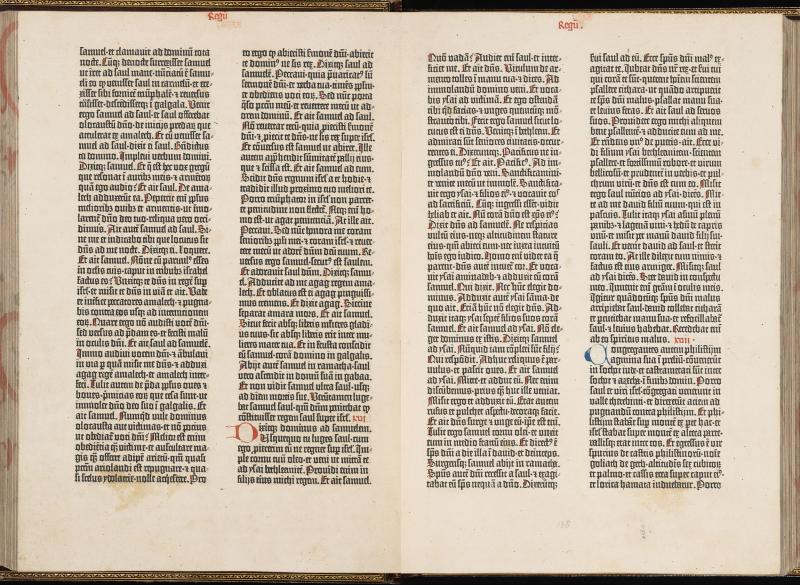 Regū
samuel·et clamavit ad dominū tota
nocte. Cūq; de nocte surrexisset samuel
ut iret ad saul mane·nūciatū ē samu-
eli eo q̄ venisset saul in carmelū·et ere-
xisset sibi fornicē triūphalē·& reversus
trāsisset·descēdissetq; ī galgala. Venit
ergo samuel ad saul·et saul offerebat
olocaustū dño·de iniciis predarū que
attulerat ex amalech. Et cū venisset sa-
muel ad saul·dixit ei saul. Bñdictus
tu domino. Implevi verbum domini.
Dixitq; samuel. Et q̄ ē hec vox gregū
que resonat ī auribus meis·& armētorū
quā ego audio? Et ait saul. De ama-
lech adduxerūt ea. Pepercit eni p̄plus
melioribs ovibs & armentis·ut īmo-
larent̄ dño deo tuo·reliqua vero occi-
dimus. Ait autem samuel ad saul. Si-
ne me et indicabo tibi que locutus sit
dñs ad me nocte. Dixitq; ei. Loquere.
Et ait samuel. Nōne cū parvul⁹ esses
in oclis tuis·caput in tribubs israhel
factus es? Unxitq; te dñs in regē sup
isrl·et misit te dñs in viā & ait. Vade
et īterfice peccatores amalech·& pugna-
bis contra eos usq; ad internicionem
eorū. Quare ergo nō audisti vocē dñi·
sed versus ad predam es·et fecisti malū
in oculis dñi. Et ait saul ad samuelē.
Immo audivi vocem dñi·& ābulavi
in via p quā misit me dñs·& adduxi
agag regē amalech·et amalech interfe-
ci. Tulit autem de p̄da p̄plus oves &
boves·primicias eorū que cesa sunt·ut
immolet dño deo suo ī galgalis. Et
ait samuel. Numqd vult dominus
olocausta aut victimas·et nō potius
ut obediat voci dñi? Melior est enim
obediētia q̄ victime·et auscultare ma-
gis q̄ offerre adipē arietū·qm quasi
peccm ariolandi est repugnare·& qua-
si scelus ydolatrie·nolle acq̄escere. Pro
eo ergo q̄ abiecisti sermonē dñi·abiecit
te domin⁹ ne sis rex. Dixitq; saul ad
samuelē. Peccavi·quia p̄varicat⁹ sū
sermonē dñi·et verba tua·timēs p̄plm
et obediēs voci eorū. Sed nūc porta
q̄so peccm meū·et revertere mecū ut ad-
orem dominū. Et ait samuel ad saul.
Nō revertar tecū·quia proiecisti sermonē
dñi·& proiecit te dñs ne sis rex sup isrl.
Et cōversus est samuel ut abiret. Ille
autem app̄hendit sūmitatē pallij eius·
que & scissa est. Et ait samuel ad eum.
Scidit dñs regnum isrl a te hodie·&
tradidit illud proximo tuo meliori te.
Porro triūphator in isrl non parcet·
et penitudine non flectet̄. Neq; eni ho-
mo est·ut agat penitenciā. At ille ait.
Peccavi. Sed nūc honora me coram
senioribs p̄pli mei·& coram isrl·& rever-
tere mecū ut adorē dñm deū tuum. Re-
versus ergo samuel·secut⁹ est saulem.
Et adoravit saul dñm. Dixitq; samuel.
Adducite ad me agag regem ama-
lech. Et oblatus est ei agag pinguissi-
mus tremens. Et dixit agag. Siccine
separat amara mors. Et ait samuel.
Sicut fecit absq; liberis mlieres gladi⁹
tuus·sic absq; liberis erit inter mu-
lieres mater tua. Et in frusta concidit
eū samuel·corā domino in galgalis.
Abijt autē samuel in ramatha·saul
vero ascendit in domum suā in gabaa.
Et non vidit samuel ultra saul·usq;
ad diem mortis sue. Verūtamen luge-
bat samuel saul·qm dñm penitebat q̄
cōstituisset regem saul super isrl. XVI
Dixitq; dominus ad samuelem.
Usquequo tu luges saul·cum
ego proiecerim eū ne regnet sup isrl. Im-
ple cornu tuū oleo·et veni ut mittā te
ad ysai bethleemitē. Providi enim in
filijs eius michi regem. Et ait samuel.
Regū.
Quō vadā? Audiet eni saul·et inter-
ficiet me. Et ait dñs. Vitulum de ar-
mento tolles ī manu tua·& dices. Ad
immolandū domino veni. Et voca-
bis ysai ad victimā. Et ego ostendā
tibi qd facias·& unges quemcūq; mō-
stravero tibi. Fecit ergo samuel sicut lo-
cutus est ei dñs. Venitq; ī bethleem. Et
admirati sūt seniores civitatis·occur-
rentes ei. Dixeruntq;. Pacificus ne in-
gressus tu⁹? Et ait. Pacific⁹. Ad im-
molandū dño veni. Sanctificamini·
et venite mecū ut īmolē. Sanctifica-
vit ergo ysai·& filios ei⁹·& vocavit eos
ad sacrificiū. Cūq; ingressi essēt·vidit
heliab & ait. Nū corā dño est xp̄us ei⁹?
Dixit dñs ad samuelē. Ne respicias
vultū eius·neq; altitudinem stature
eius·qm abieci eum·nec iuxta intuitū
hoīs ego iudico. Homo eni videt ea q̄
parent·dñs autē intuet̄ cor. Et voca-
vit ysai aminadab·& adduxit eū corā
samuel. Qui dixit. Nec hūc elegit do-
minus. Adduxit autē ysai sāma·de
quo ait. Etiā hūc nō elegit dñs. Ad-
duxit itaq; ysai septē filios suos corā
samuel. Et ait samuel ad ysai. Nō ele-
git dominus ex istis. Dixitq; samuel
ad ysai. Nūquid iam cōpleti sūt filij?
Qui respōdit. Adhuc reliquus ē par-
vulus·et pascit oves. Et ait samuel
ad ysai. Mitte·et adduc eū. Nec enim
discūbemus·prius q̄ huc ille veniat.
Misit ergo et adduxit eū. Erat autem
rufus et pulcher aspectu·decoraq; facie.
Et ait dñs surge & unge eū·ip̄e est eni.
Tulit ergo samuel cornu olei·et unxit
eum in medio fratrū eius. Et directus ē
sp̄us dñi a die illa ī david·et deinceps.
Surgensq; samuel abijt in ramatha.
Sp̄us autē dñi recessit a saul·& exagi-
tabat eū sp̄us nequā a dño. Dixeruntq;
servi saul ad eū. Ecce sp̄us dñi mal⁹ ex-
agitat te. Iubeat dñs nr̄ rex·et servi tui
qui corā te sūt·querent hoīem scientem
psallere cithara·ut quādo arripuerit
te sp̄us dñi malus·psallat manu sua·
et levius feras. Et ait saul ad servos
suos. Providete ergo michi aliquem
bene psallentē·& adducite eum ad me.
Et rn̄dens un⁹ de pueris·ait. Ecce vi-
di filium ysai bethleemitem·scientem
psallere·et fortissimū robore·et virum
bellicosū·et prudentē in verbis·et pul-
chrum·virū·& dñs est cum eo. Misit
ergo saul nūcios ad ysai·dicēs. Mit-
te ad me david filiū tuum·qui est in
pascuis. Tulit itaq; ysai asinū plenū
panibs·& lagenā vini·& hedū de capris
unū·et misit per manū david filij sui
sauli. Et venit david ad saul·et stetit
coram eo. At ille dilexit eum nimis·&
factus est eius armiger. Misitq; saul
ad ysai·dicēs. Stet david in conspectu
meo. Invenit eni grām ī oculis meis.
Igitur quādocūq; sp̄us dñi malus
arripiebat saul·david tollebat citharā
et percutiebat manu sua·et refocillabat̄
saul·& levius habebat. Recedebat eni
ab eo spiritus malus. XVII
Congregantes autem philistijm
agmina sua ī preliū·cōvenerūt
in soccho iude·et castrametati sūt inter
soccho & azecha·ī finibs domin. Porro
saul et viri isrl·cōgregati venerunt in
valle therebinti·et direxerūt aciem ad
pugnandū contra philistijm. Et phi-
listijm stabāt sup montē ex pte hac·et
isrl stabat supra montē ex altera parte·
vallisq; erat inter eos. Et egressus ē vir
spurius de castris philistinorū·nōie
goliath de geth·altitudis sex cubitoꝝ
et palmo·et cassis erea super caput ei⁹·
et lorica hamata induebatur. Porro